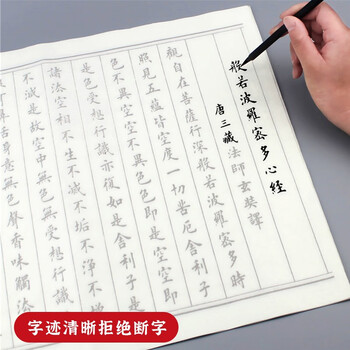 般若波羅蜜多心經
唐三藏法師玄奘譯
觀自在菩薩行深般若波羅蜜多時
照見五蘊皆空度一切苦厄舍利子
色不異空空不異色色即是空空即
是色受想行識亦復如是舍利子
諸法空相不生不滅不垢不淨不增
不減是故空中無色無受想行識
舌身意無色聲香味觸法
字迹清晰拒绝断字